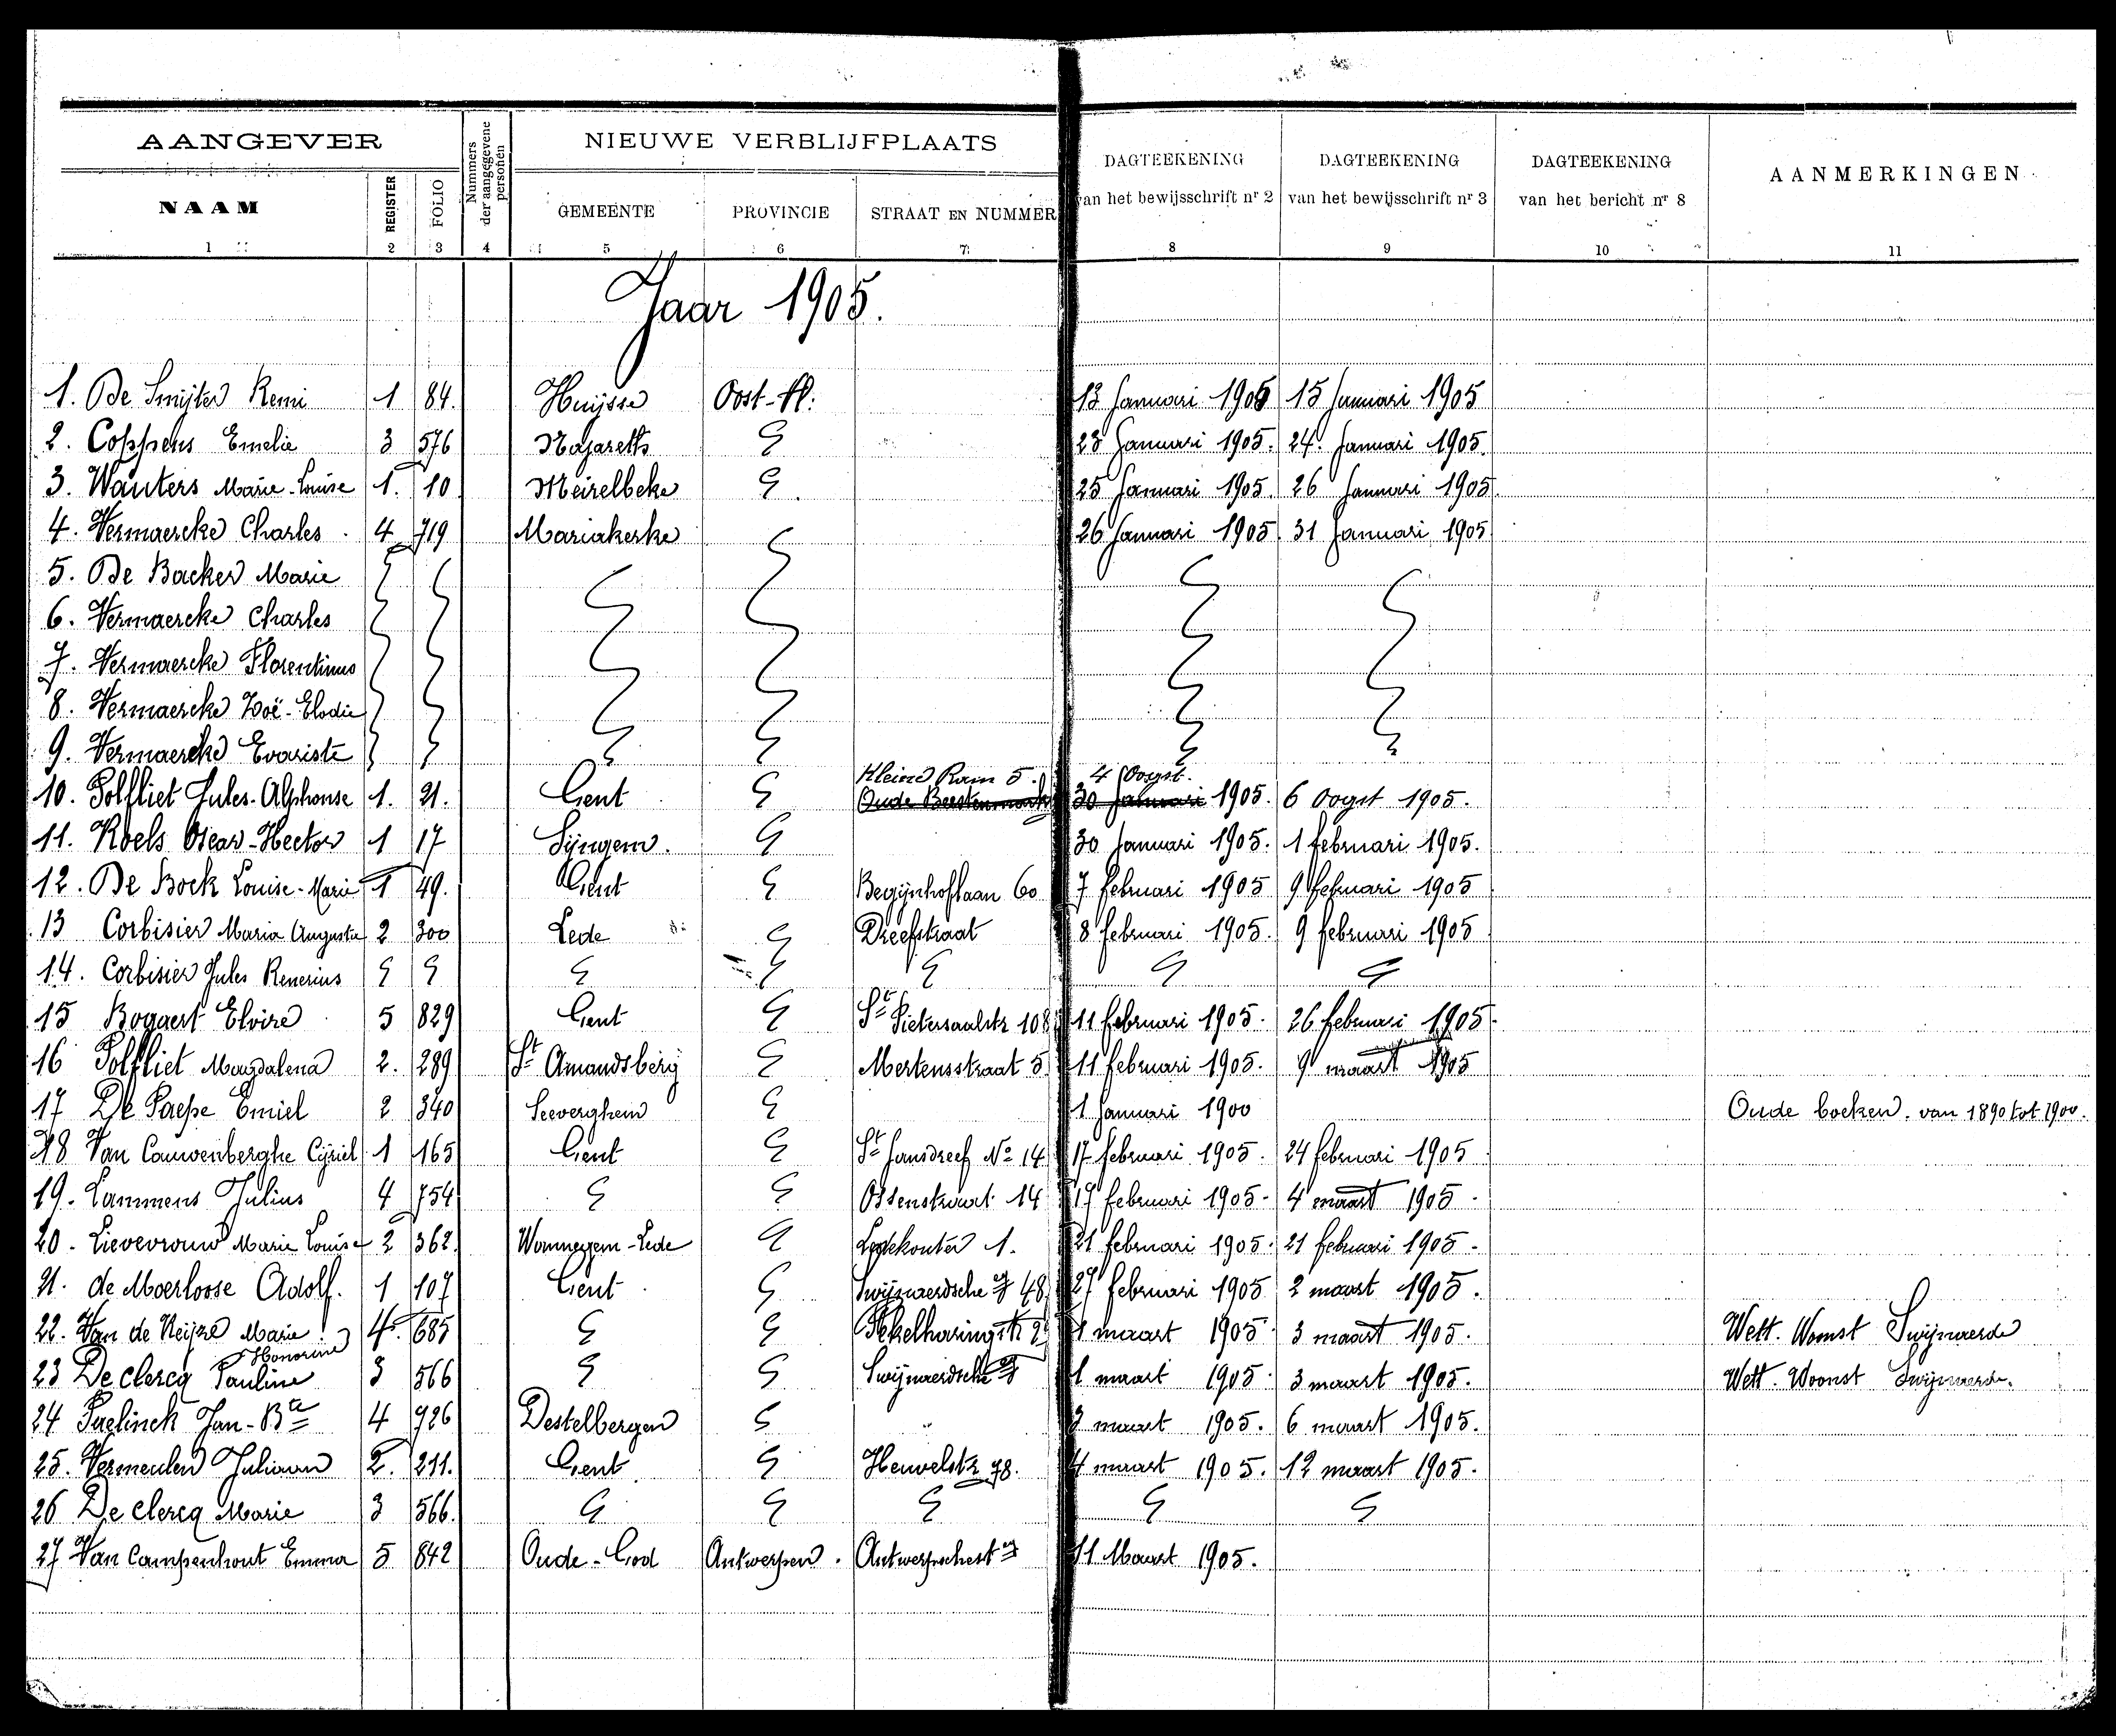 AANGEVER
NIEUWE VERBLIJFPLAATS
Nummers der aangegevene personen
DAGTEEKENING van het bewijsschrift nr 2
DAGTEEKENING van het bewijsschrift nr 3
DAGTEEKENING van het bericht nr 8
AANMERKINGEN
NAAM REGISTER FOLIO GEMEENTE PROVINCIE STRAAT EN NUMMER
1 2 3 4 5 6 7 8 9 10 11
Jaar 1905.
1. De Smijter Remi 1 84. Huijsse Oost-Vl: 13 Januari 1905 15 Januari 1905
2. Coppens Emelie 3 576 Nazareth 23 Januari 1905. 24. Januari 1905.
3. Wauters Marie-Louise 1. 10 Meirelbeke 25 Januari 1905. 26 Januari 1905.
4. Vermaercke Charles. 4 719 Mariakerke 26 Januari 1905 31 Januari 1905
5. De Backer Marie
6. Vermaercke Charles
7. Vermaercke Florentinus
8. Vermaercke Zoë-Elodie
9. Vermaercke Evariste
Kleine Ram 5. 4 Oogst.
10. Polfliet Jules-Alphonse 1. 21. Gent Oude Beestenmarkt 30 Januari 1905. 6 Oogst 1905.
11. Roels Oscar-Hector 1 17 Sijngem. 30 Januari 1905. 1 februari 1905.
12. De Bock Louise-Marie 1 49. Gent Begijnhoflaan 60 7 februari 1905 9 februari 1905
13 Corbisier Maria Augusta 2 300 Lede Dreefstraat 8 februari 1905. 9 februari 1905
14. Corbisier Jules Renerius
15 Bogaert Elvire 5 829 Gent St Pietersaalstr 108 11 februari 1905. 26 februari 1905.
16 Polfliet Magdalena 2. 289 St Amandsberg Mertensstraat 5 11 februari 1905. 9 maart 1905
17 De Paepe Emiel 2 340 Seeverghem 1 Januari 1900 Oude boeken. van 1890 tot 1900.
18 Van Cauwenberghe Cijriel 1 165 Gent St Jansdreef No 14 17 februari 1905. 24 februari 1905
19. Lammens Julius 4 754 Ossenstraat 14 17 februari 1905. 4 maart 1905.
20. Lievevrouw Marie Louise 2 362. Wannegem-Lede Ledekouter 1. 21 februari 1905. 21 februari 1905.
21. de Moerloose Adolf. 1 107 Gent Swijnaerdsche 48 27 februari 1905 2 maart 1905.
22. Van de Keijze Marie 4. 685 Pekelharingstr 1 maart 1905. 3 maart 1905. Wett. Woonst Swijnaerde
Honorine
23 De clercq Pauline 3 566 Swijnaerdsche 1 maart 1905. 3 maart 1905. Wett. Woonst Swijnaerde.
24 Paelinck Jan-Bte 4 726 Destelbergen 3 maart 1905. 6 maart 1905.
25. Vermeulen Juliaan 2. 211. Gent Heuvelstr 78. 4 maart 1905. 12 maart 1905.
26 De clercq Marie 3 566.
27 Van Campenhout Emma 5 842 Oude-God Antwerpen. Antwerpschest 11 Maart 1905.